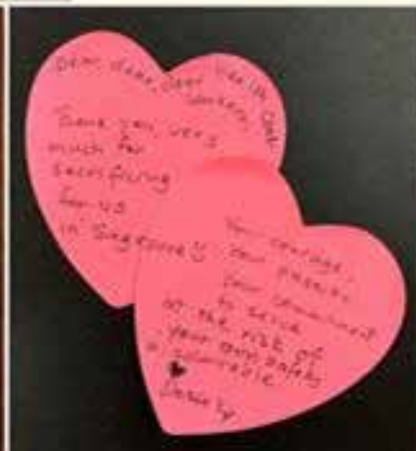 Dear, dear, dear Health Care
Workers,
Thank you, very
much for
sacrificing
for us
in Singapore
Your courage,
Your passion,
Your commitment
to serve
at the risk of
your own safety
is admirable